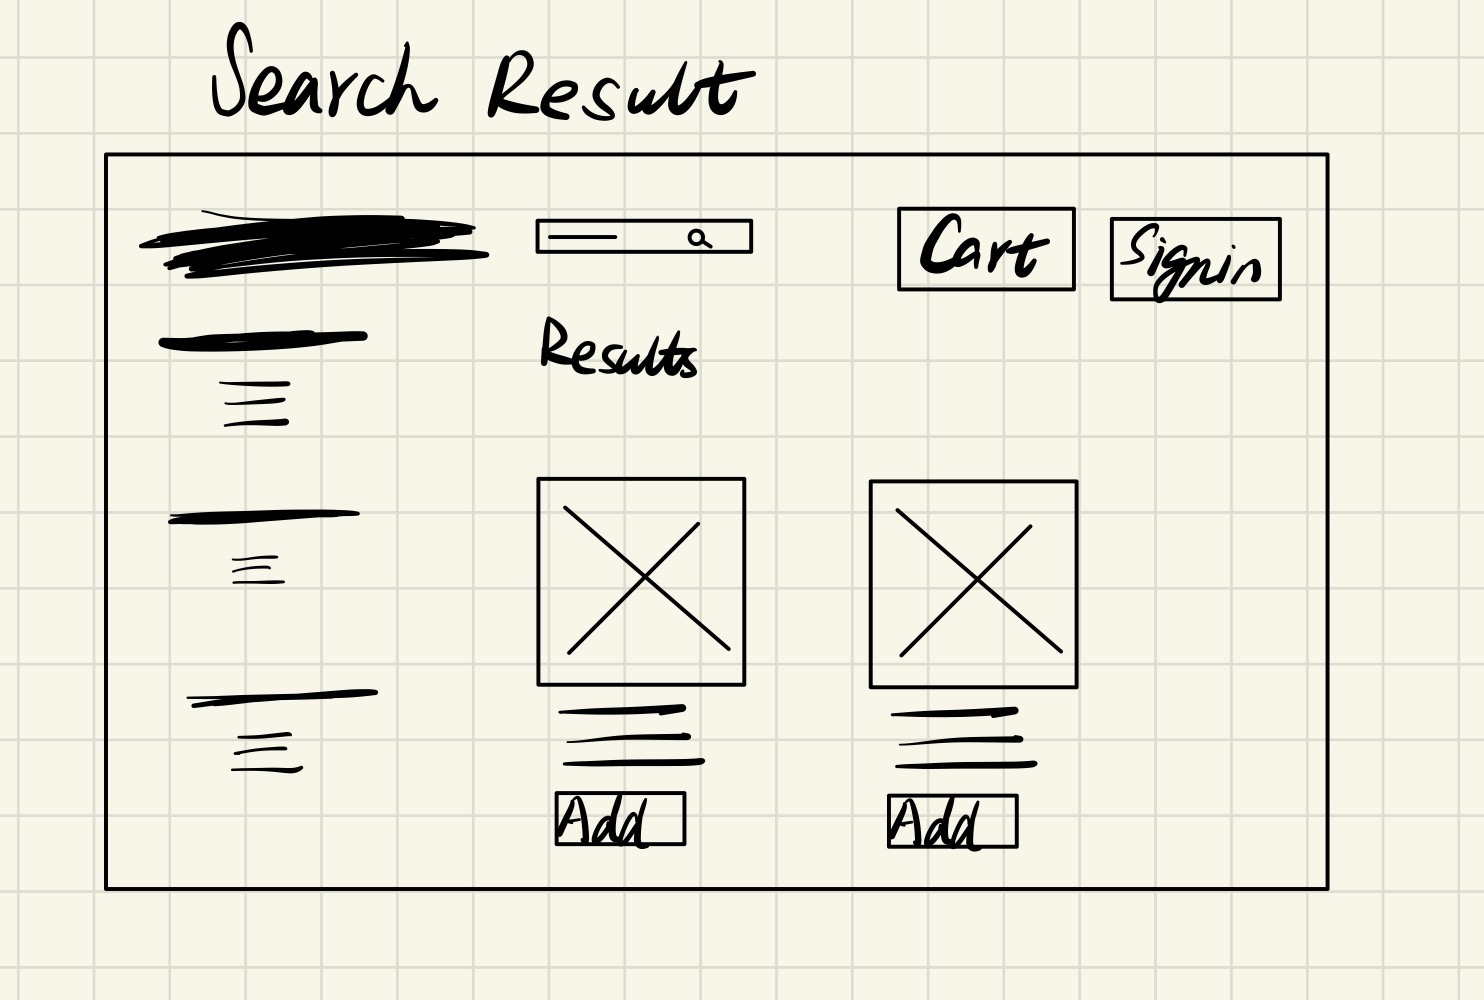 Search Result
Cart
Signin
Results
Add
Add